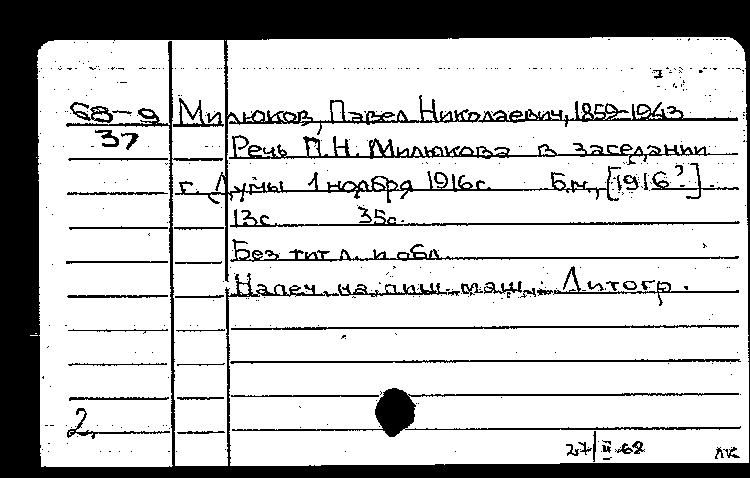 68-9 Милюков, Павел Николаевич, 1859-1943
37 Речь П.Н. Милюкова в заседании
г. Думы 1 ноября 1916г. Б.м., [1916?].
13с. 35с.
Без тит л. и обл.
Напеч. на пиш. маш.. Литогр.
2.
27/II-68